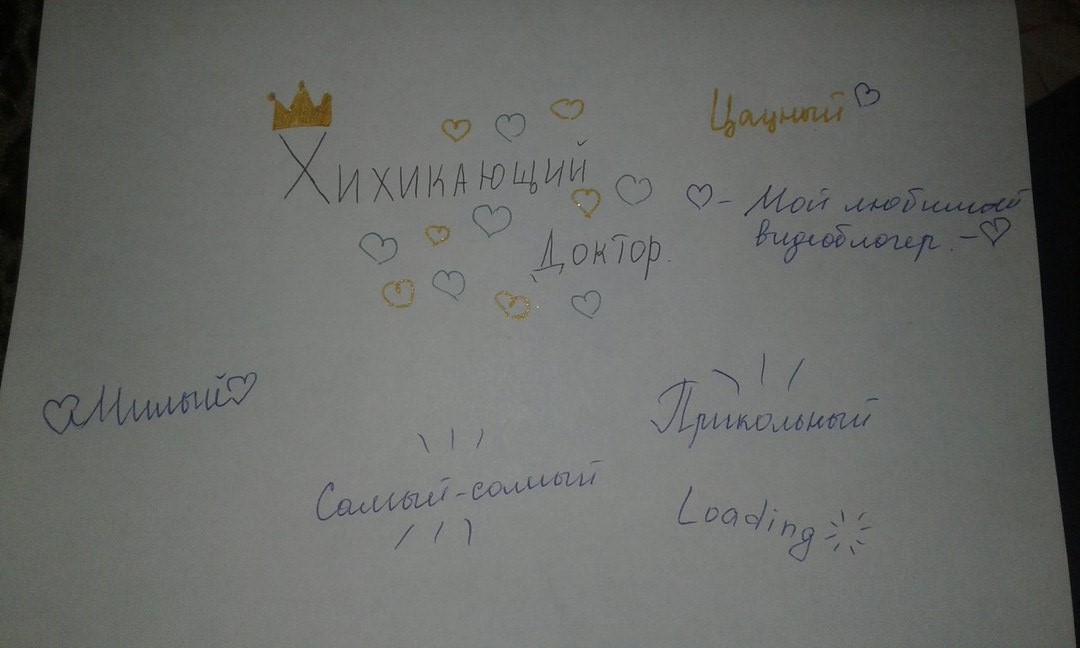 Цацный
Хихикающий
Мой любимый
видеоблогер.
Доктор.
Милый
Прикольный
Самый-самый
Loading